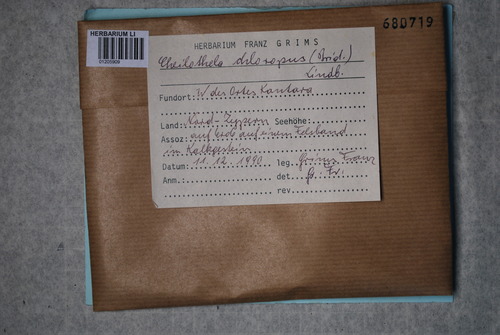 680719
HERBARIUM LI
01205909
HERBARIUM FRANZ GRIMS
Cheilothela chloropus (Brid.)
Lindb.
Fundort: W des Ortes Kantara
Land: Nord-Zypern Seehöhe:
Assoz: auf Erde auf einem Felsband
in Kalkgestein
Datum: 11.12.1990 leg. Grims Franz
Anm.: det. G. Fr.
rev.